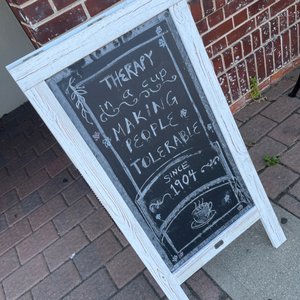 THERAPY
in a cup
MAKING
PEOPLE
TOLERABLE
SINCE
1904